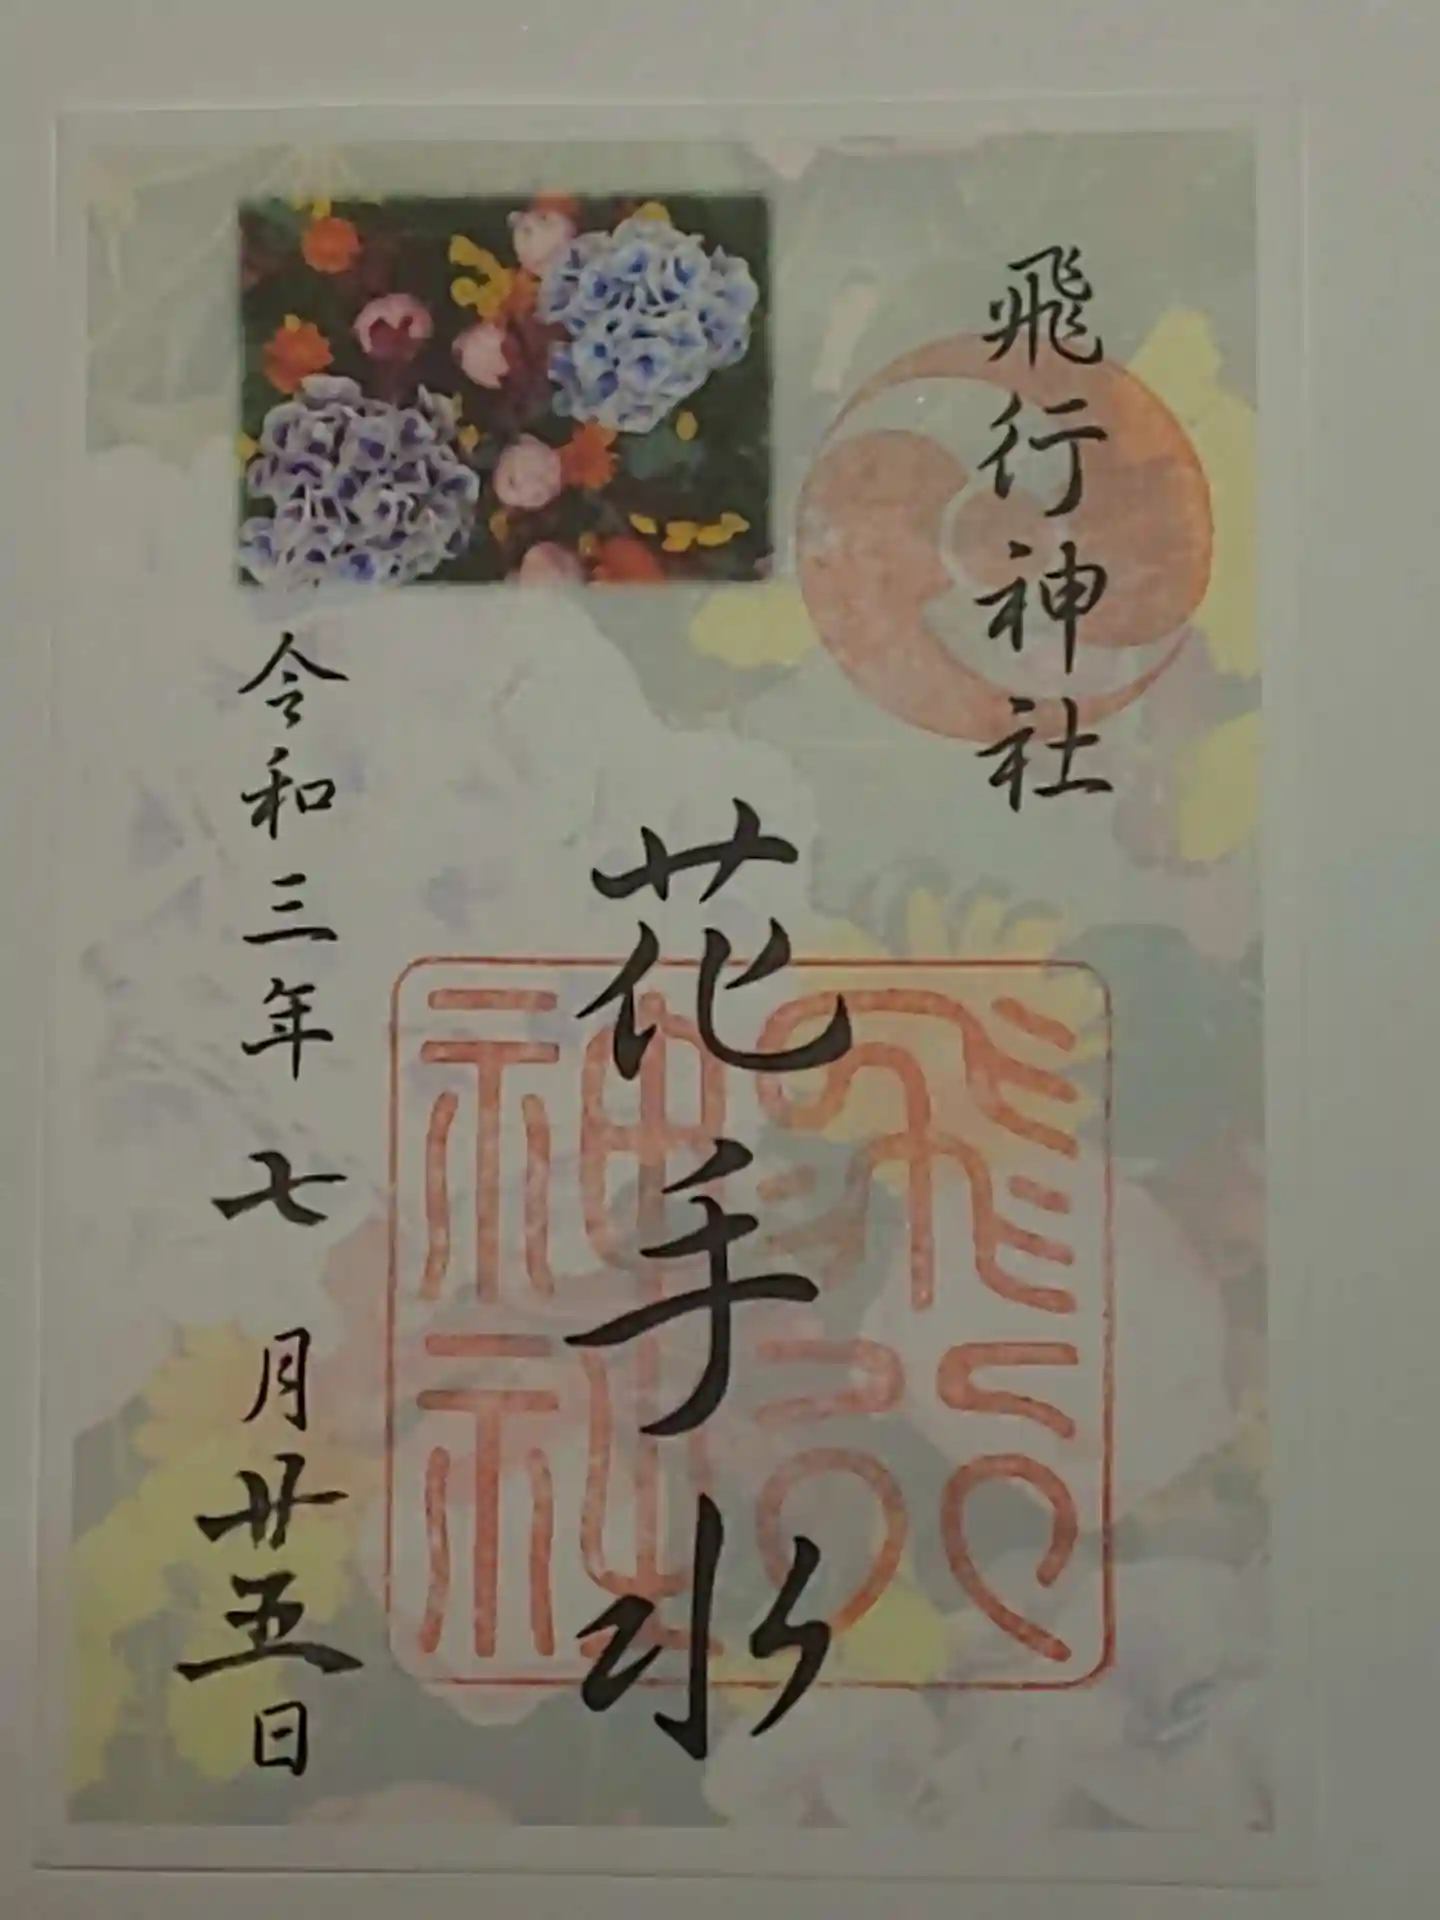 飛行神社
花手水
飛行
神社
令和三年 七月廿五日